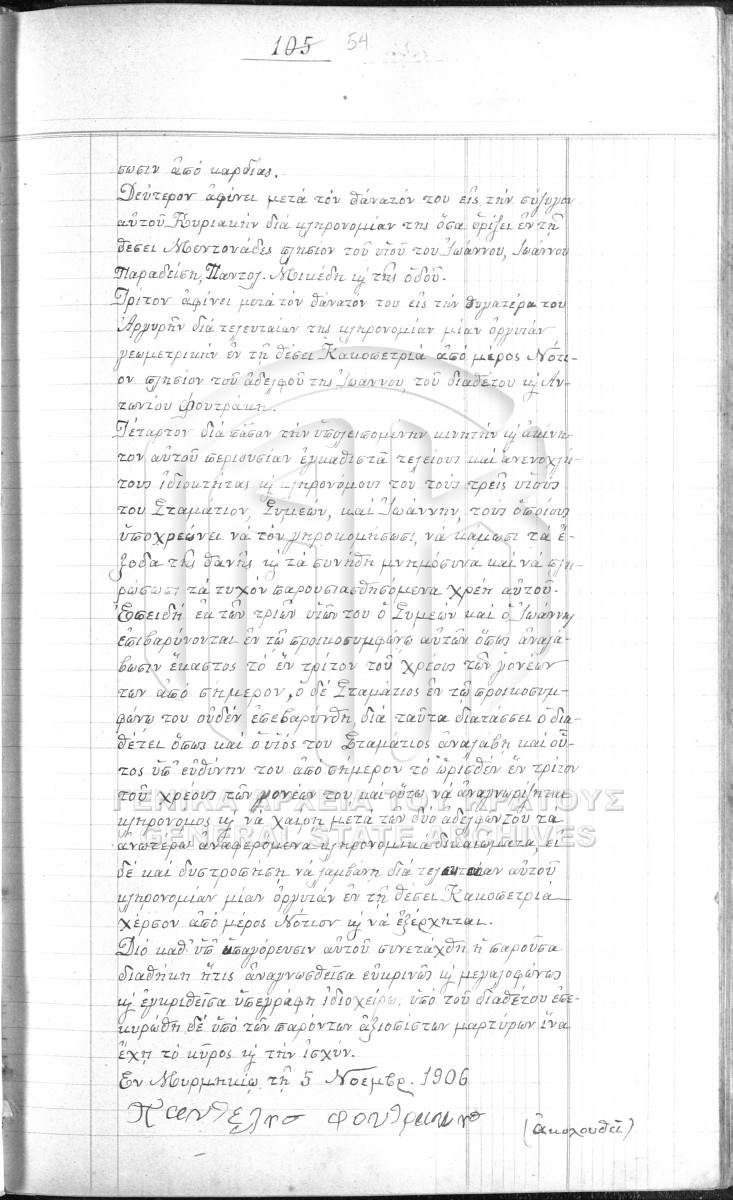 105 54
πωσιν ἀπό καρδίας.
Δεύτερον ἀφίνει μετά τόν θάνατόν του εἰς τήν σύζυγον
αὐτοῦ Κυριακήν διά κληρονομίαν της ὅσα ὁρίζει ἐν τῇ
θέσει Μεντονάδες πλησίον τοῦ υἱοῦ του Ἰωάννου, Ἰωάννου
Παραδείση, Παντολ. Μικέδη κ τῆς ὁδοῦ.
Τρίτον ἀφίνει μετά τόν θάνατόν του εἰς τήν θυγατέρα του
Ἀργυρῆν διά τελευταίαν της κληρονομίαν μίαν ὀργυιάν
γεωμετρικήν ἐν τῇ θέσει Κακοπετριά ἀπό μέρος Νότι-
ον πλησίον τοῦ ἀδελφοῦ της Ἰωάννου, τοῦ διαθέτου κ Ἀν-
τωνίου Φουτράκη.
Τέταρτον διά πᾶσαν τήν ὑπολειπομένην κινητήν κ ἀκίνη-
τον αὐτοῦ περιουσίαν ἐγκαθιστᾶ τελείους καί ἀνενοχλή-
τους ἰδιοκτήτας κ κληρονόμους του τούς τρεῖς υἱούς
του Σταμάτιον, Συμεών, καί Ἰωάννην, τούς ὁποίους
ὑποχρεώνει νά τόν γηροκομήσωσι, νά κάμωσι τά ἔ-
ξοδα τῆς θανῆς κ τά συνήθη μνημόσυνα καί νά πλη-
ρώσωσι τά τυχόν παρουσιασθησόμενα χρέη αὐτοῦ.
Ἐπειδή ἐκ τῶν τριῶν υἱῶν του ὁ Συμεών καί ὁ Ἰωάννης
ἐπιβαρύνονται ἐν τῷ προικοσυμφώνῳ αὐτῶν ὅπως ἀναλά-
βωσιν ἕκαστος τό ἕν τρίτον τοῦ χρέους τῶν γονέων
των ἀπό σήμερον, ὁ δέ Σταμάτιος ἐν τῷ προικοσυμ-
φώνῳ του οὐδέν ἐπεβαρύνθη, διά ταῦτα διατάσσει ὁ δια-
θέτει ὅπως καί ὁ υἱός του Σταμάτιος ἀναλάβῃ καί οὗ-
τος ὑπ' εὐθύνην του ἀπό σήμερον τό ὡρισθέν ἕν τρίτον
τοῦ χρέους τῶν γονέων του καί οὕτω νά ἀναγνωρίζηται
κληρονόμος κ νά χαίρῃ μετά τῶν δύο ἀδελφῶν του τά
ἀνωτέρω ἀναφερόμενα κληρονομικά δικαιώματα, εἰ
δέ καί δυστροπήσῃ νά λαμβάνῃ διά τελευταίαν αὐτοῦ
κληρονομίαν μίαν ὀργυιάν ἐν τῇ θέσει Κακοπετριά
χέρσον ἀπό μέρος Νότιον κ νά ἐξέρχηται.
Διό καθ' ὑπαγόρευσιν αὐτοῦ συνετάχθη ἡ παροῦσα
διαθήκη ἥτις ἀναγνωσθεῖσα εὐκρινῶς κ μεγαλοφώνως
κ ἐγκριθεῖσα ὑπεγράφη ἰδιοχείρως ὑπό τοῦ διαθέτου ἐπε-
κυρώθη δέ ὑπό τῶν παρόντων ἀξιοπίστων μαρτύρων ἵνα
ἔχῃ τό κῦρος κ τήν ἰσχύν.
Ἐν Μυρμηκίῳ τῇ 5 Νοεμβρ. 1906
Παντελησ φουτρακησ
(ἀκολουθεῖ)
ΓΕΝΙΚΑ ΑΡΧΕΙΑ ΤΟΥ ΚΡΑΤΟΥΣ
GENERAL STATE ARCHIVES